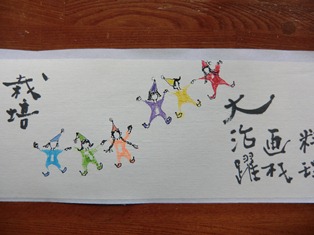 料理
画材
大活躍
栽培